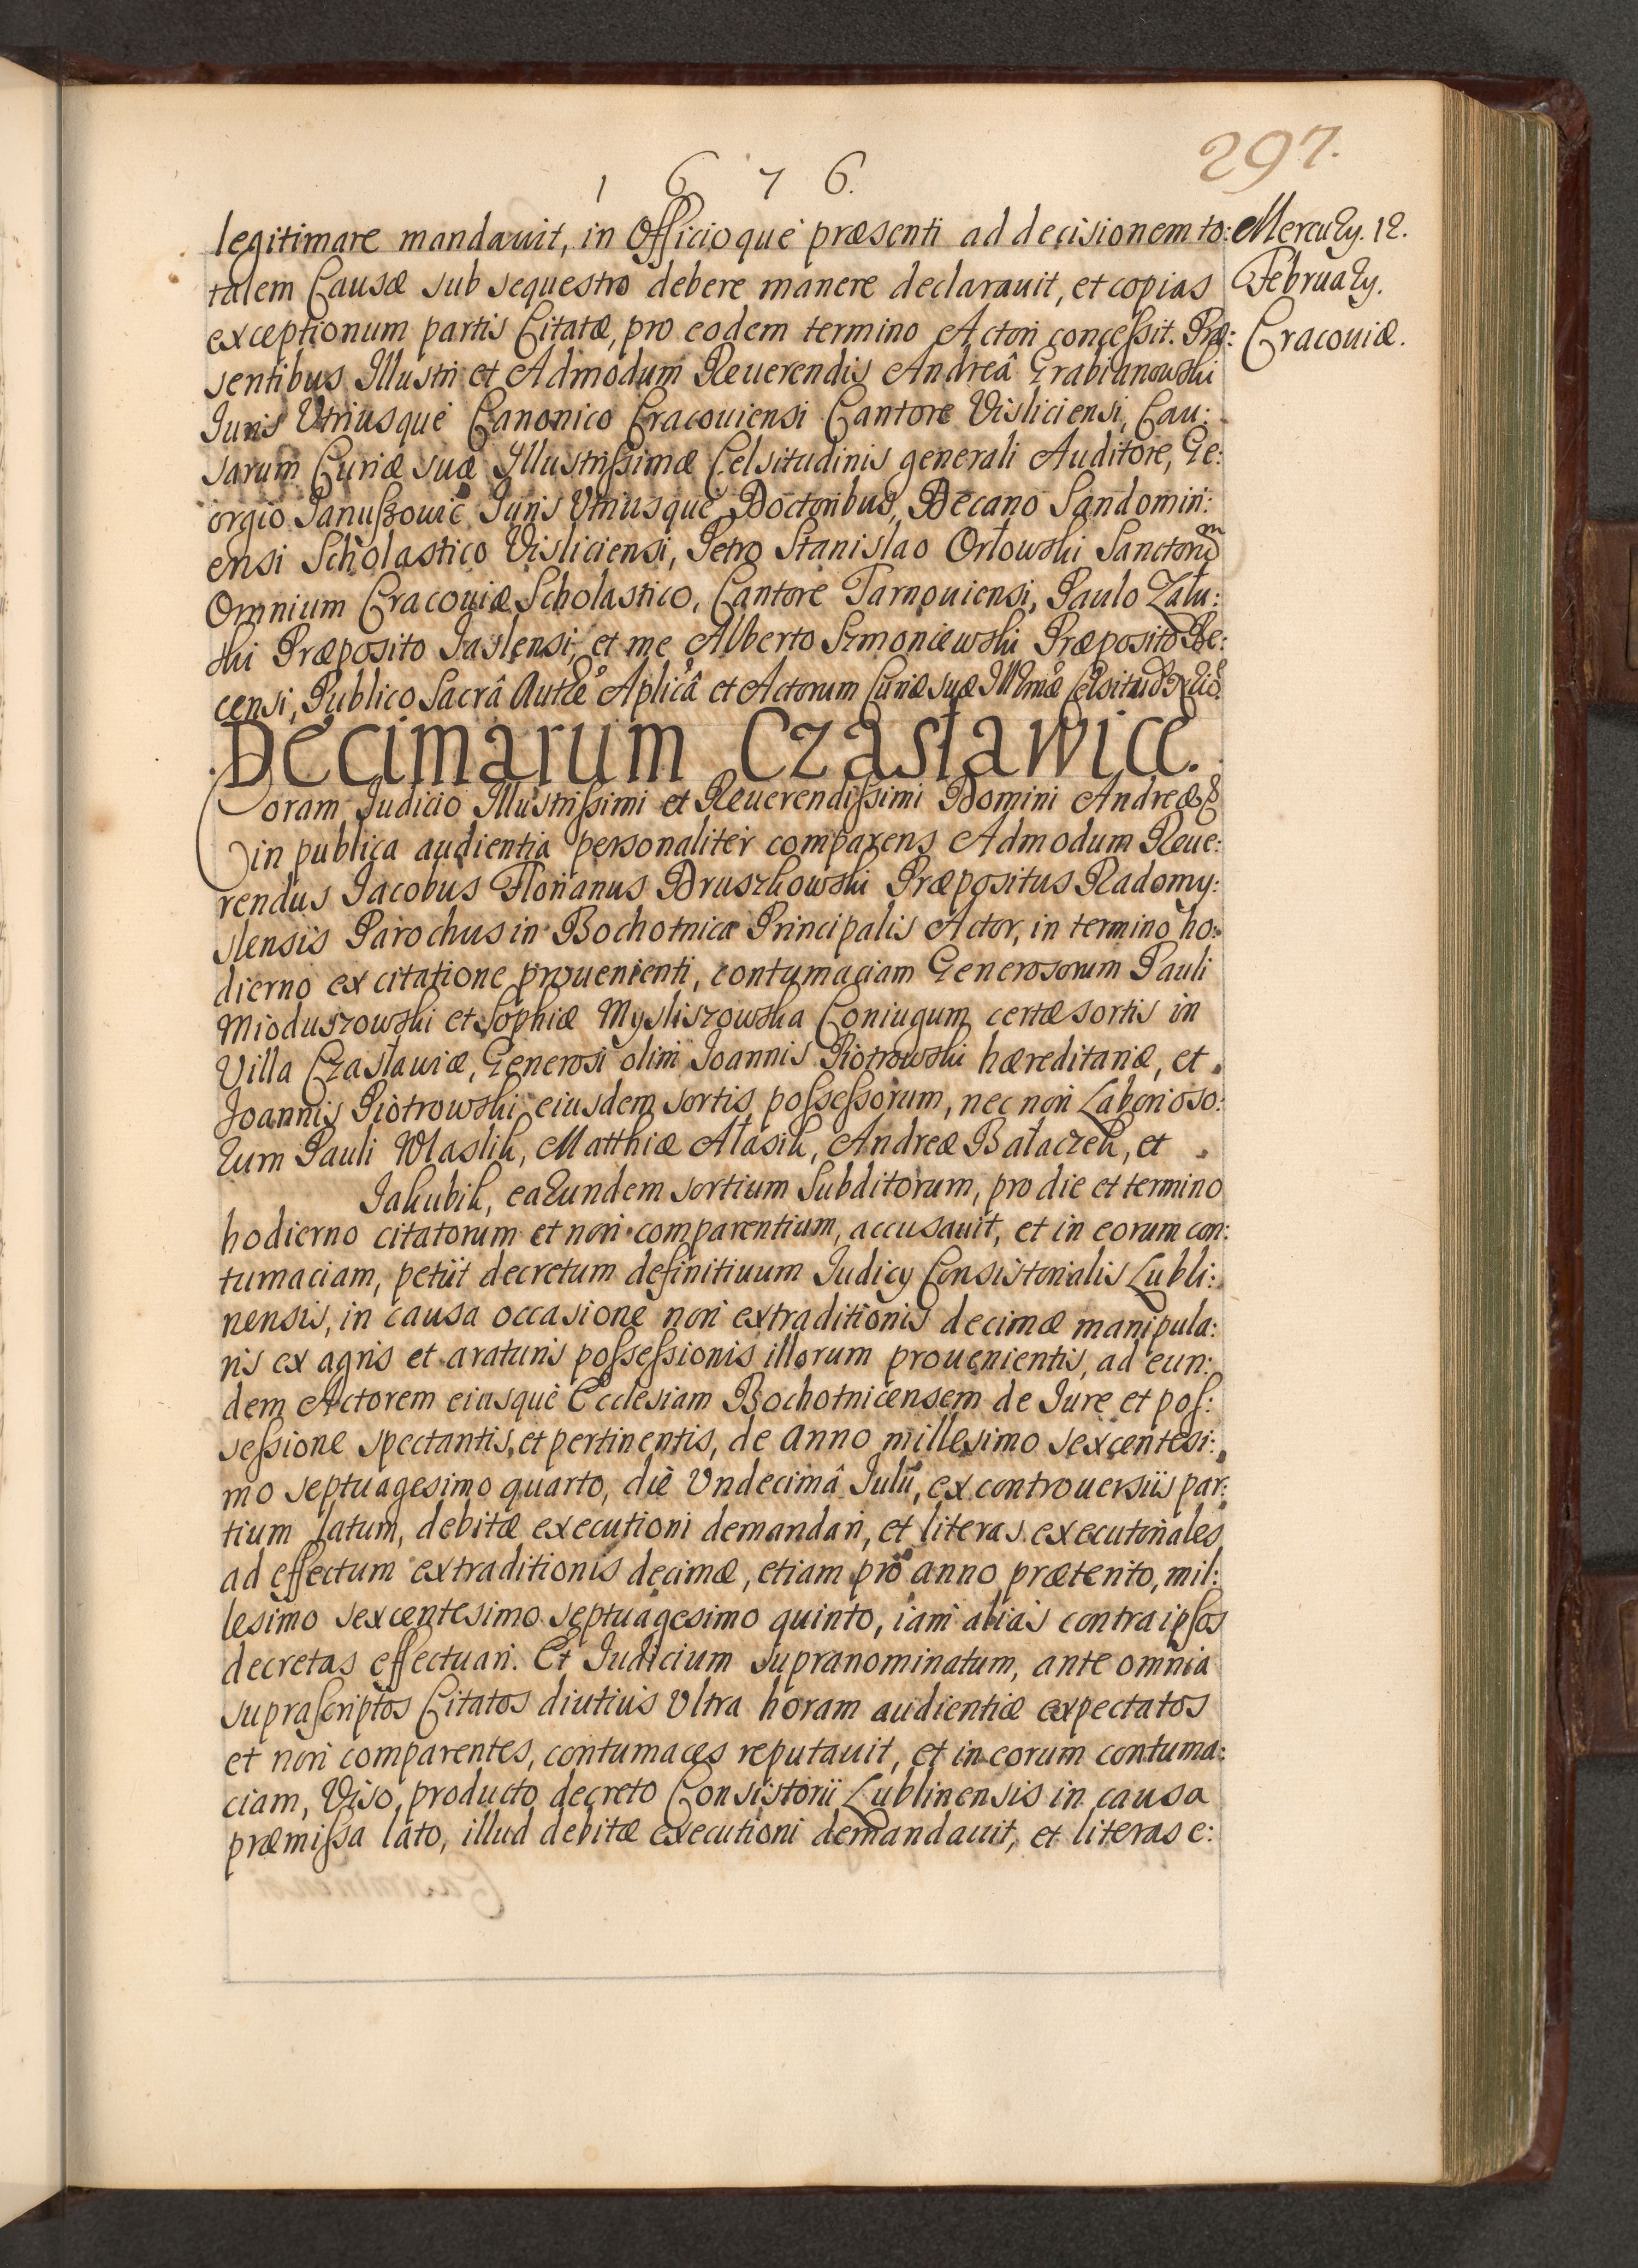 297.
1 6 7 6.
legitimare mandauit, in Officioque præsenti ad decisionem to:
talem Causæ sub sequestro debere manere declarauit, et copias
exceptionum partis Citatæ, pro eodem termino Actori concessit. Præ:
sentibus Illustri et Admodum Reuerendis Andreâ Grabianowski
Iuris Vtriusque Canonico Cracouiensi Cantore Visliciensi, Cau:
sarum Curiæ suæ Illustrissimæ Celsitudinis generali Auditore, Ge:
orgio Januszouic Iuris Vtriusque Doctoribus, Decano Sandomiri:
ensi Scholastico Visliciensi, Petro Stanislao Orłowski Sanctorum
Omnium Cracouiæ Scholastico, Cantore Tarnouiensi, Paulo Zału:
ski Præposito Jaslensi, et me Alberto Szmoniewski Præposito Be:
censi, Publico Sacrâ Aut͞te Aplicâ et Actorum Curiæ suæ Ill͞mæ Celsitud
Mercurij. 12.
Februarij.
Cracouiæ.
Decimarum Czasławice.
Coram Iudicio Illustrissimi et Reuerendissimi Domini Andreæ &
in publica audientia personaliter comparens Admodum Reue:
rendus Jacobus Florianus Bruszkowski Præpositus Radomy:
slensis Parochus in Bochotnica Principalis Actor, in termino ho:
dierno ex citatione prouenienti, contumaciam Generosorum Pauli
Mioduszowski et Sophiæ Mysliszowska Coniugum certæ sortis in
Villa Czasławiæ, Generosi olim Joannis Piotrowski hæreditariæ, et
Joannis Piotrowski eiusdem sortis possessorum, nec non Laborioso:
rum Pauli Wlaslik, Matthiæ Ałasik, Andreæ Bałaczek, et
Jakubik, earundem sortium Subditorum, pro die et termino
hodierno citatorum et non comparentium, accusauit, et in eorum con:
tumaciam, petiit decretum definitiuum Iudicij Consistorialis Lubli:
nensis, in causa occasione non extraditionis decimæ manipula:
ris ex agris et araturis possessionis illorum prouenientis, ad eun:
dem Actorem eiusque Ecclesiam Bochotnicensem de Iure et pos:
sessione spectantis, et pertinentis, de anno millesimo sexcentesi:
mo septuagesimo quarto, die Vndecimâ Iulii, ex controuersiis par:
tium latum, debitæ executioni demandari, et literas executoriales
ad effectum extraditionis decimæ, etiam pro anno prætento, mil:
lesimo sexcentesimo septuagesimo quinto, iam alias contra ipsos
decretas effectuari. Et Iudicium supranominatum, ante omnia
suprascriptos Citatos diutius Vltra horam audientiæ expectatos
et non comparentes, contumaces reputauit, et in eorum contuma:
ciam, Viso producto decreto Consistorii Lublinensis in causa
præmissa lato, illud debitæ executioni demandauit, et literas e: